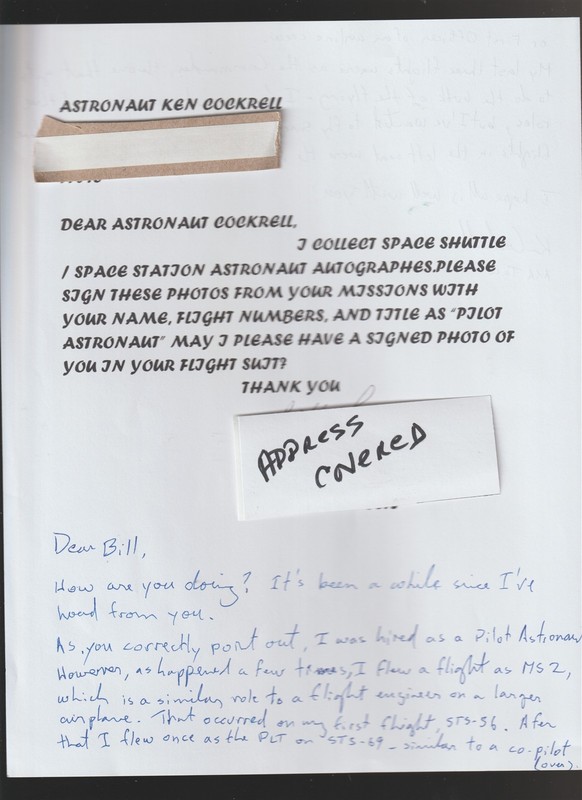 ASTRONAUT KEN COCKRELL
DEAR ASTRONAUT COCKRELL,
I COLLECT SPACE SHUTTLE
/ SPACE STATION ASTRONAUT AUTOGRAPHES.PLEASE
SIGN THESE PHOTOS FROM YOUR MISSIONS WITH
YOUR NAME, FLIGHT NUMBERS, AND TITLE AS "PILOT
ASTRONAUT" MAY I PLEASE HAVE A SIGNED PHOTO OF
YOU IN YOUR FLIGHT SUIT?
THANK YOU
ADDRESS
COVERED
Dear Bill,
How are you doing? It's been a while since I've
heard from you.
As you correctly point out, I was hired as a Pilot Astronaut
However, as happened a few times, I flew a flight as MS2,
which is a similar role to a flight engineer on a larger
airplane. That occurred on my first flight, STS-56. After
that I flew once as the PLT on STS-69 - similar to a co-pilot
(over).